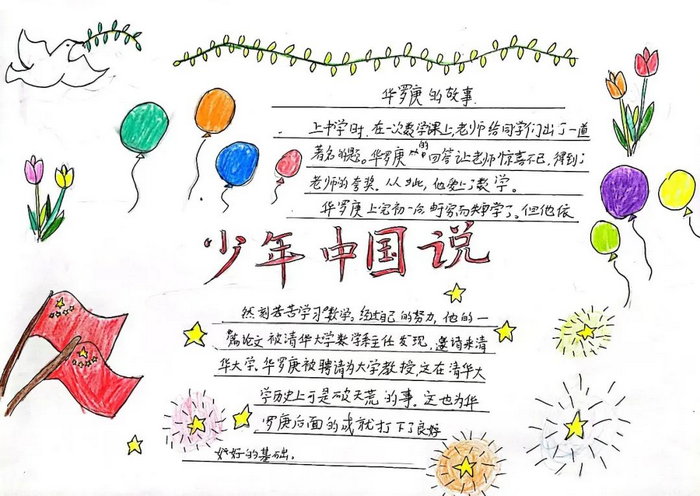 华罗庚的故事
上中学时，在一次数学课上老师给同学们出了一道
著名的题。华罗庚的回答让老师惊喜不已，得到了
老师的夸奖。从此，他爱上了数学。
华罗庚上完初一后，因家贫失学了。但他依
少年中国说
然刻苦学习数学。经过自己的努力，他的一
篇论文被清华大学数学系主任发现，邀请来清
华大学。华罗庚被聘请为大学教授，这在清华大
学历史上可是破天荒的事。这也为华
罗庚后面的成就打下了良好
好的基础。